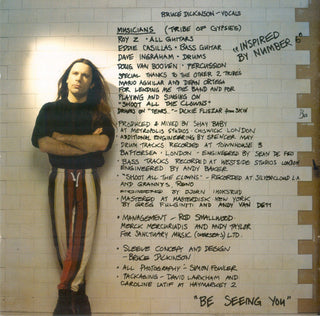 BRUCE DICKINSON - VOCALS
MUSICIANS (TRIBE OF GYPSIES)
ROY Z - ALL GUITARS
EDDIE CASILLAS - BASS GUITAR
DAVE INGRAHAM - DRUMS
DOUG VAN BOOVEN - PERCUSSION
SPECIAL THANKS TO THE OTHER 2 TRIBES
MARIO AGUILAR AND DEAN ORTEGA
FOR LENDING ME THE BAND AND FOR
PLAYING AND SINGING ON
"SHOOT ALL THE CLOWNS"
DRUMS ON "TEARS.." - DICKIE FLISZAR FROM SKIN
"INSPIRED
BY NUMBER 6"
PRODUCED & MIXED BY SHAY BABY
AT METROPOLIS STUDIOS - CHISWICK LONDON
ADDITIONAL ENGINEERING BY SPENCER MAY
DRUM TRACKS RECORDED AT TOWNHOUSE 3
BATTERSEA - LONDON - ENGINEERED BY SEAN DE FEO
BASS TRACKS RECORDED AT WESTSIDE STUDIOS LONDON
ENGINEERED BY ANDY BAKER
"SHOOT ALL THE CLOWNS" - RECORDED AT SILVERCLOUD LA
AND GRANNY'S, RENO
ENGINEERED BY BJORN THORSRUD
- MASTERED AT MASTERDISK NEW YORK
BY GREG FULGINITI AND ANDY VAN DETT
- MANAGEMENT - ROD SMALLWOOD
MERCK MERCURIADIS AND ANDY TAYLOR
FOR SANCTUARY MUSIC (OVERSEAS) LTD.
- SLEEVE CONCEPT AND DESIGN -
BRUCE DICKINSON
- ALL PHOTOGRAPHY - SIMON FOWLER
- PACKAGING - DAVID LARKHAM AND
CAROLINE LATIF AT HAYMARKET 2
"BE SEEING YOU"